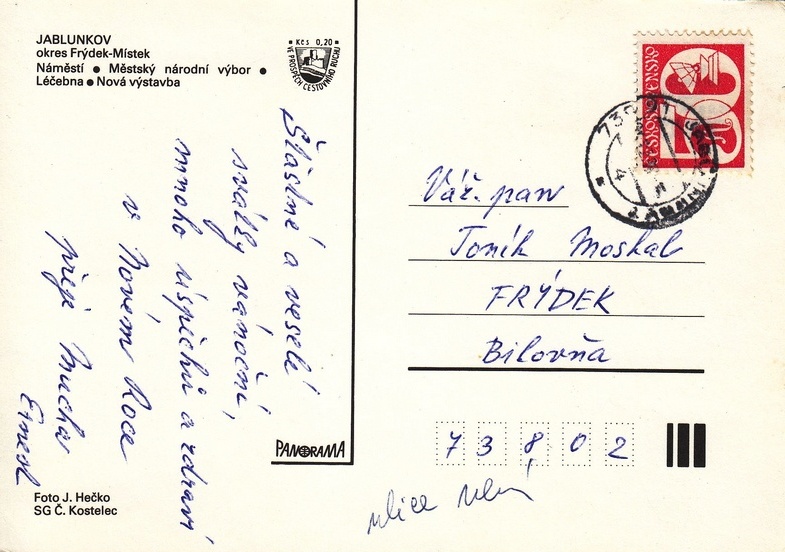 JABLUNKOV
okres Frýdek-Místek
Náměstí ● Městský národní výbor ●
Léčebna ● Nová výstavba
Kčs 0,20
VE PROSPĚCH CESTOVNÍHO RUCHU
Šťastné a veselé
svátky vánoční,
mnoho úspěchů a zdraví
v Novém Roce
přeje Buchar
Ernest
PANORAMA
Foto J. Hečko
SG Č. Kostelec
ČESKOSLOVENSKO
50
739 91
Váž. pan
Toník Moskal
FRÝDEK
Bilovňa
7 3 8 0 2
ulice